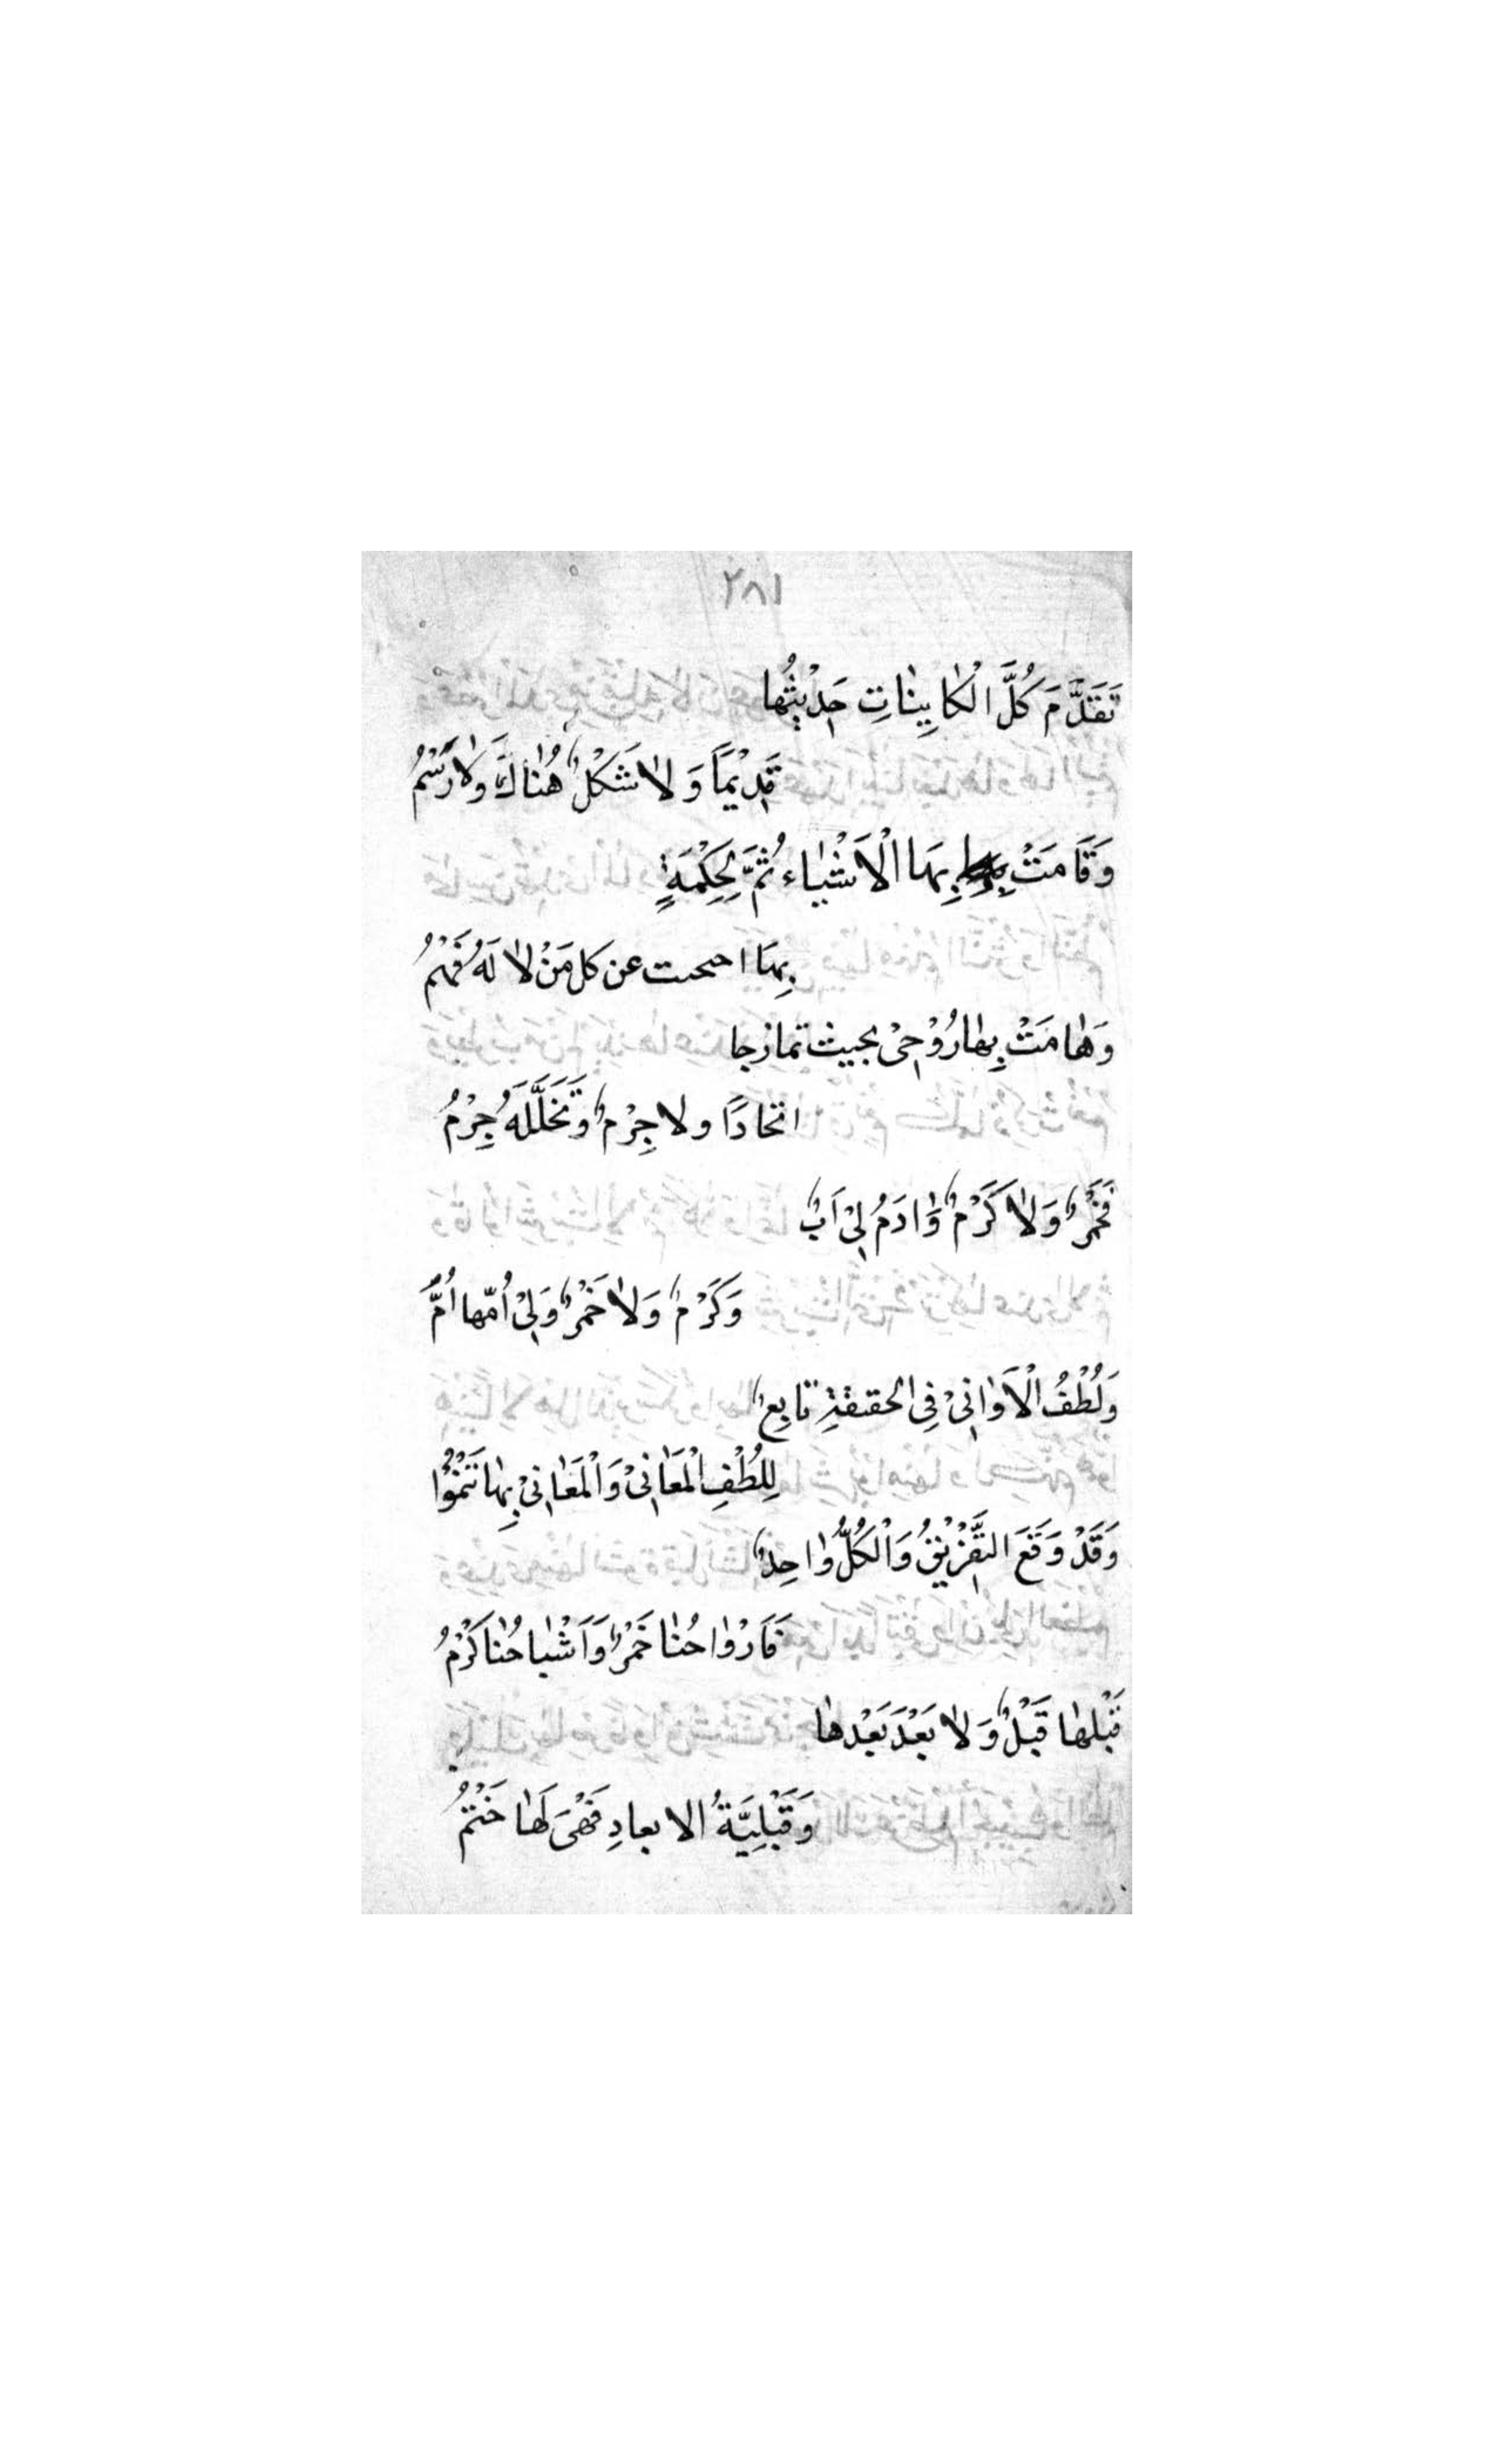 ٢٨١
تَقَدَّمَ كُلَّ الْكاَيِنٰاتِ حَدْيثُها
قَدِيْمَاً وَلاٰ شَكْلٌ هُنٰاكَ وَلاٰ رَسْمُ
وَقَامَتْ بِهَا الْاَشْيٰاء ثُمَّ لِحِكْمَةٍ
بِهَا احىحىت عن كل مَنْ لاٰ لَهُ فَهْمُ
وَهٰامَتْ بِهٰا رُوْحِىْ بحيث تمازجا
اتحادًا ولا جِرْمٌ وَتَخَلَّلَهُ جِرْمُ
فَخَمْرٌ وَلاٰ كَرْمٌ وَاٰدَمُ لِىْ اَبٌ
وَكَرْمٌ وَلاٰ خَمْرٌ وَلِىْ اُمّها اُمُّ
وَلُطْفُ الْاَوٰانِىْ فِى الحقىقةِ تابِعٌ
لِلُطْفِ الْمَعَانِىْ وَالْمَعٰانِىْ بِهٰا تَنْمُوْا
وَقَدْ وَقَعَ التَّفْرِيْقُ وَالْكُلُّ وٰاحِدٌ
فَاَرْوٰاحُنٰا خَمْرٌ وَاَشْبٰاحُنٰا كَرْمُ
قَبْلهٰا قَبْلٌ وَلاٰ بَعْدَ بَعْدهٰا
وَقَبْلِيَّةُ الابعادِ فَهْىَ لَهٰا خَتْمُ